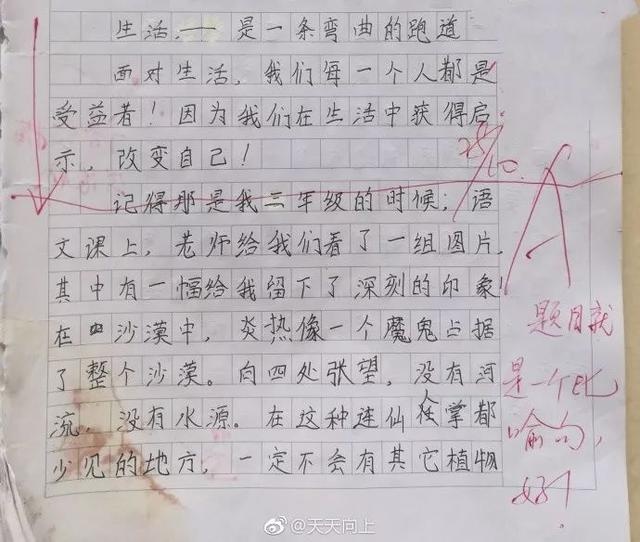 生活,——是一条弯曲的跑道
面对生活,我们每一个人都是
受益者!因为我们在生活中获得启
示,改变自己!
记得那是我三年级的时候;语
文课上,老师给我们看了一组图片,
其中有一幅给我留下了深刻的印象!
在沙漠中,炎热像一个魔鬼占据
了整个沙漠。向四处张望,没有河
流,没有水源。在这种连仙人掌都
少见的地方,一定不会有其它植物
A
题目就
是一个比
喻句,
好!
@天天向上